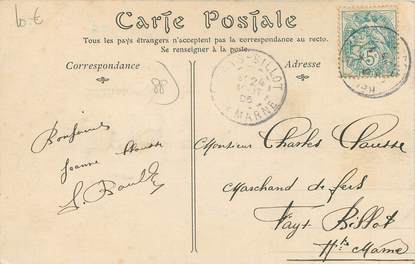 10 €
Carte Postale
Tous les pays étrangers n'acceptent pas la correspondance au recto.
Se renseigner à la poste.
Correspondance
Adresse
88
YS-BILLOT
24
05
MARNE
5
Monsieur Charles
Marchand de fers
Fays Billot
Hte Marne
Jeanne